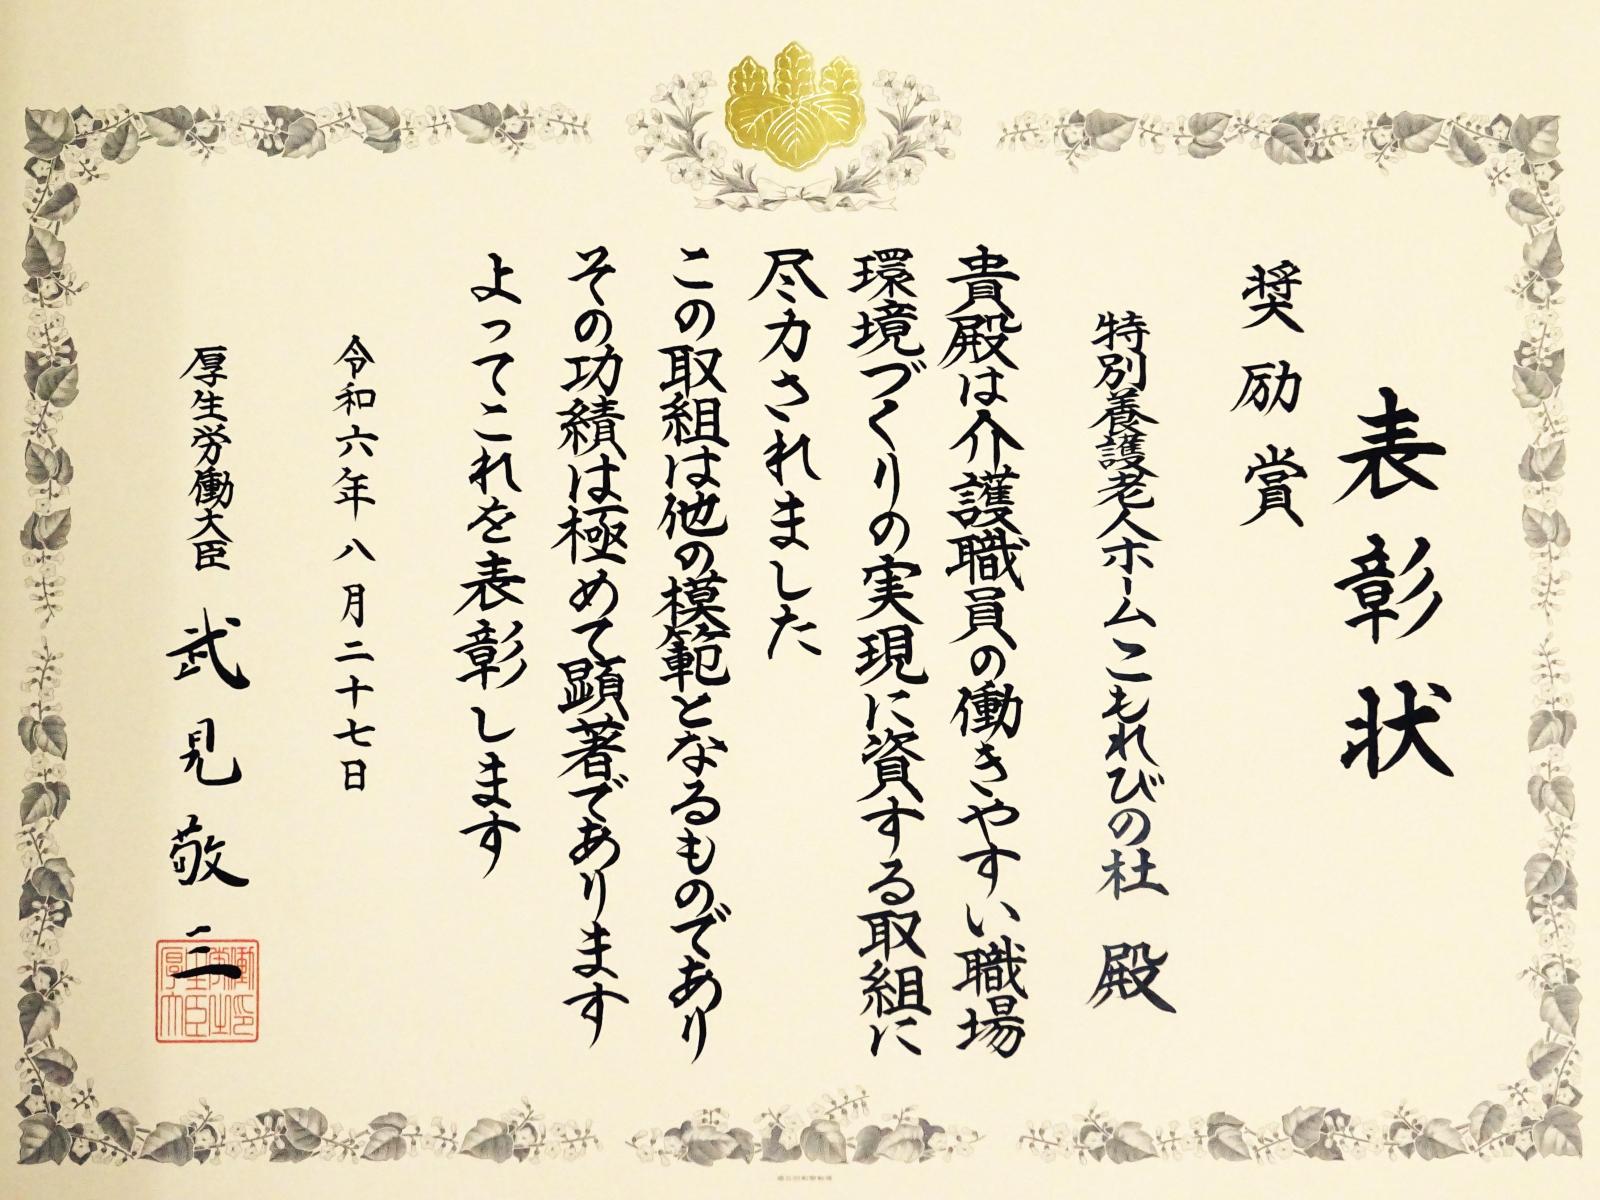 表彰状
奨励賞
特別養護老人ホームこもれびの杜 殿
貴殿は介護職員の働きやすい職場
環境づくりの実現に資する取組に
尽力されました
この取組は他の模範となるものであり
その功績は極めて顕著であります
よってこれを表彰します
令和六年八月二十七日
厚生労働大臣 武見敬三